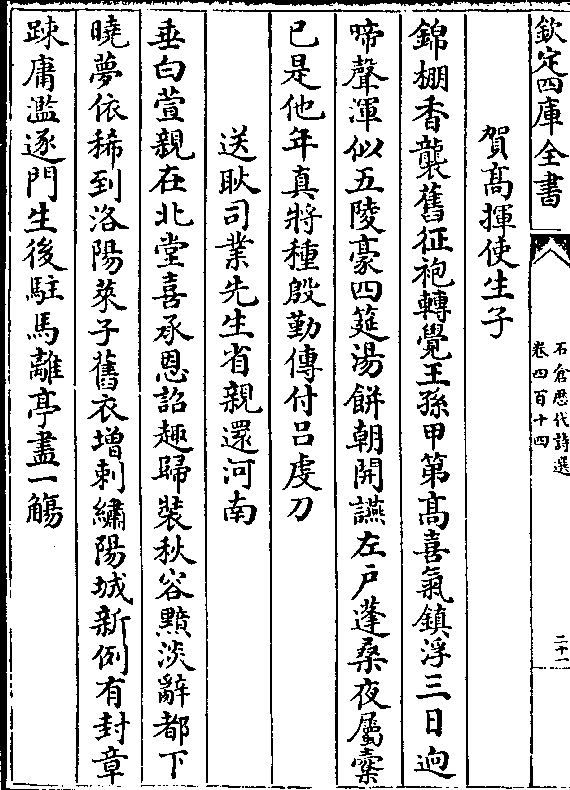 欽定四庫全書
石倉歴代詩選
卷四百十四
二十一
賀髙揮使生子
錦棚香襲舊征袍轉覺王孫甲第髙喜氣鎮浮三日逈
啼聲渾似五陵豪四筵湯餅朝開讌左戸蓬桑夜屬櫜
已是他年真將種殷勤傳付吕䖍刀
送耿司業先生省親還河南
垂白萱親在北堂喜承恩詔趣歸裝秋容黯淡辭都下
曉夢依稀到洛陽萊子舊衣增刺繡陽城新例有封章
踈庸濫逐門生後駐馬離亭盡一觴